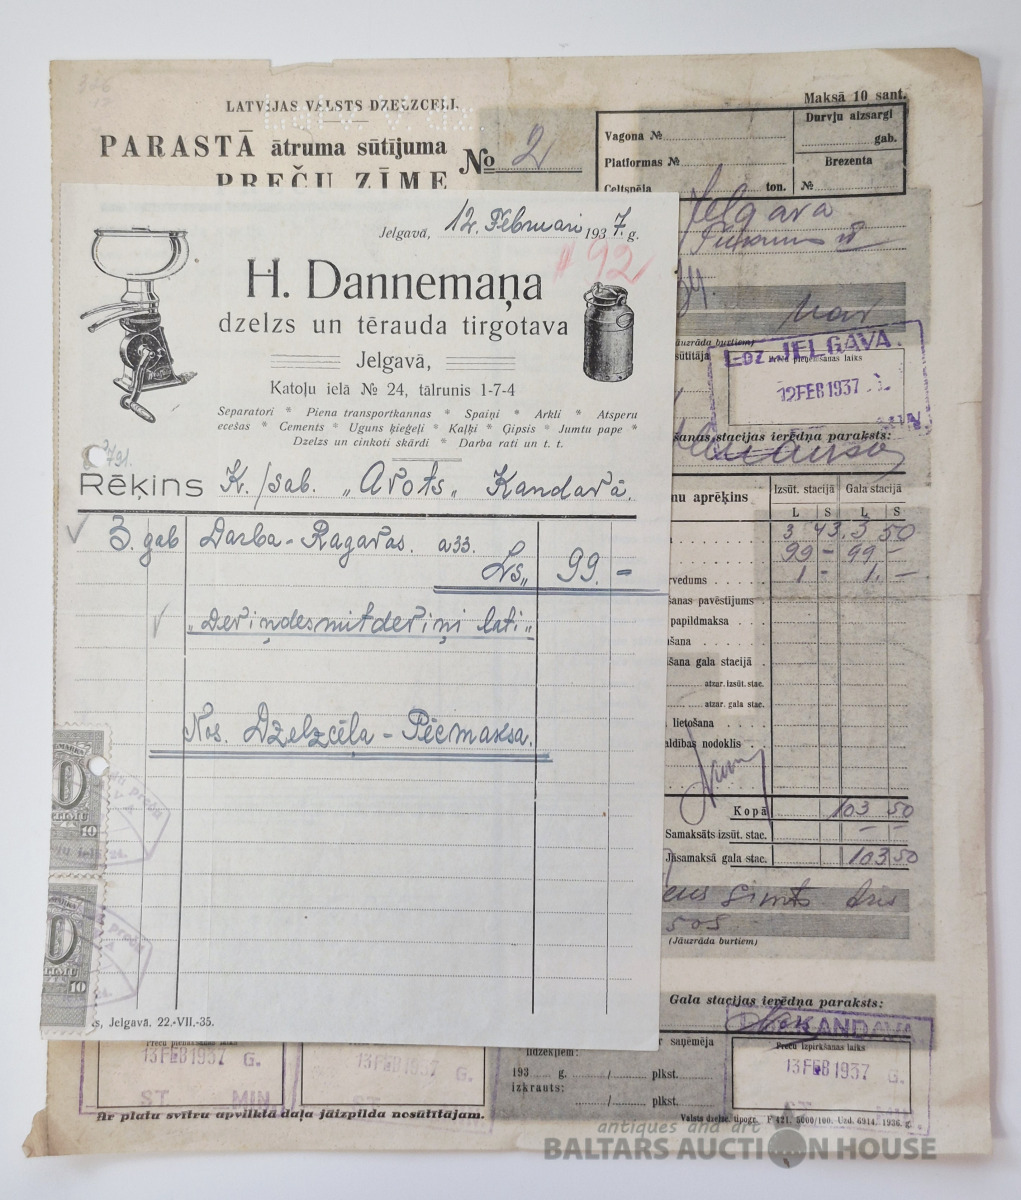 LATVIJAS VALSTS DZELZCEĻI.
PARASTĀ ātruma sūtījuma
PREČU ZĪME
№ 2
Maksā 10 sant.
Vagona №
Platformas №
Celtspēja ton.
Durvju aizsargi
gab.
Brezenta
№
Jelgava
Jelgavā, 12. Februari 1937. g.
# 92
H. Dannemaņa
dzelzs un tērauda tirgotava
Jelgavā,
Katoļu ielā № 24, tālrunis 1-7-4
Separatori * Piena transportkannas * Spaiņi * Arkli * Atsperu
ecešas * Cements * Uguns ķieģeļi * Kaļķi * Ģipsis * Jumtu pape *
Dzelzs un cinkoti skārdi * Darba rati un t. t.
Rēķins K./sab. „Avots„ Kandavā.
3. gab Darba-Ragavas. a 33.
Ls„ 99. –
„Deviņdesmitdeviņi lati„
Nos. Dzelzceļa – Pēcmaksa.
s, Jelgavā. 22.-VII.-35.
Ldz. JELGAVA.
12 FEB 1937
šanas stacijas ierēdņa paraksts:
nu aprēķins
Izsūt. stacijā Gala stacijā
L S L S
3 43 3 50
99 – 99 –
rvedums 1 – 1. –
šanas pavēstījums
papildmaksa
šana
šana gala stacijā
atzar. izsūt. stac.
atzar. gala stac.
lietošana
aldības nodoklis
Kopā 103 50
Samaksāts izsūt. stac. – –
Jāsamaksā gala stac. 103 50
simts
(Jāuzrāda burtiem)
Gala stacijas ierēdņa paraksts:
KANDAVA
Preču izpirkšanas laiks
13 FEB 1937 G.
Preču pienākšanas laiks
13 FEB 1937 G.
ST MIN
13 FEB 1937 G.
ST
līdzekļiem:
193 g. / plkst.
izkrauts:
/ plkst.
r saņēmēja
Ar platu svītru apvilktā daļa jāizpilda nosūtītājam.
Valsts dzelzc. tipogr. F 421. 5000/100. Uzd. 6914. 1936. g.
antiques and art
BALTARS AUCTION HOUSE